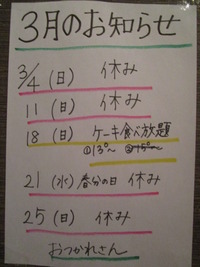 3月のお知らせ
3/4 (日) 休み
11 (日) 休み
18 (日) ケーキ食べ放題
①13°~ ②15°~
21 (水) 春分の日 休み
25 (日) 休み
おつかれさん